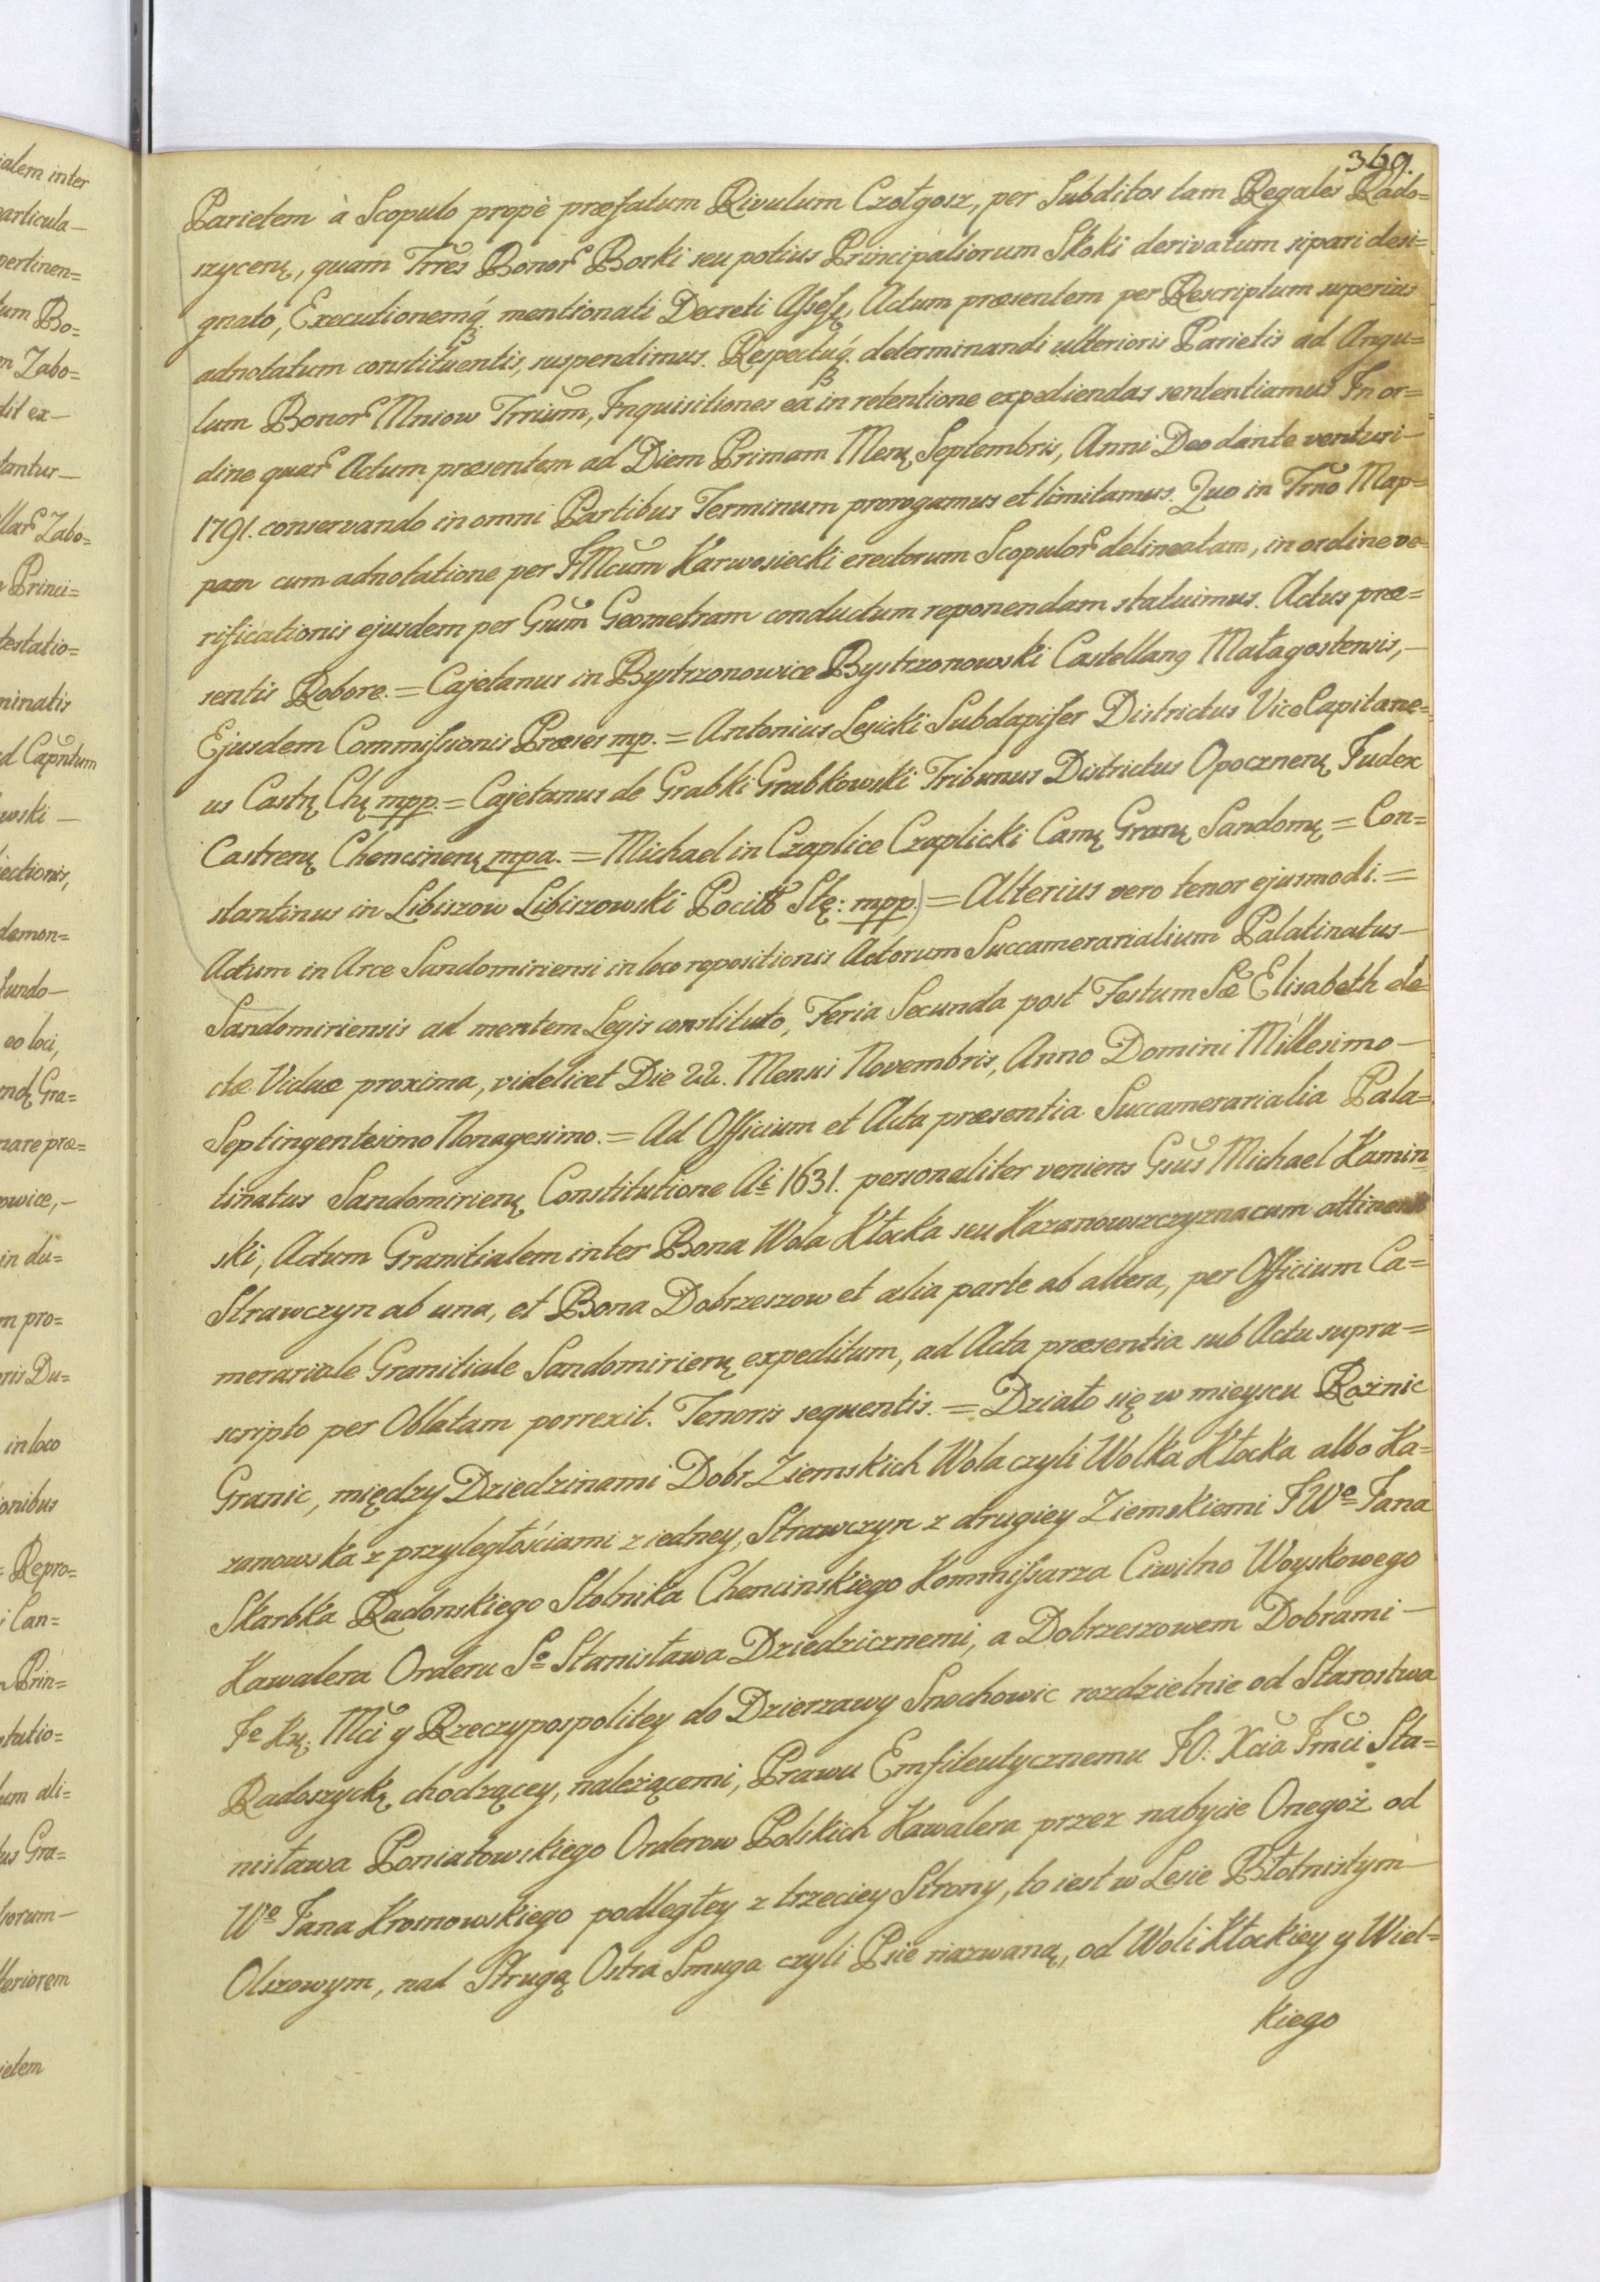 369.
Parietem à Scopulo propè præfatum Rivulum Czołgosz, per Subditos tam Regales Rado=
szycen̄, quam Trr̃es Bonor̃ Borki seu potius Principaliorum Skoki derivatum sipari desi=
gnato, Executionemq́. mentionati Decreti Assess̨, Actum præsentem per Rescriptum superius
adnotatum constituentis, suspendimus. Respectuq́. determinandi ulterioris Parietis ad Angu=
lum Bonor̃ Mniow Trrium̃, Inquisitiones ea in retentione expediendas sententiamus. In or=
dine quar̃ Actum præsentem ad Diem Primam Mens̨ Septembris, Anni Deo dante venturi—
1791. conservando in omni Partibus Terminum prorogamus et limitamus. Quo in Trño Map=
pam cum adnotatione per IMcum̃ Karwosiecki erectorum Scopulor̃ delineatam, in ordine ve=
rificationis ejusdem per Gium̃ Geometram conductum reponendam statuimus. Actus præ=
sentis Robore. = Cajetanus in Bystrzonowice Bystrzonowski Castellan9 Małagostensis,—
Ejusdem Commissionis Præses mp. = Antonius Lesicki Subdapifer Districtus ViceCapitane=
us Castr̨ Ch̨ mpp. = Cajetanus de Grabki Grabkowski Tribunus Districtus Opocznen̨ Judex
Castren̨ Chencinen̨ mpa. = Michael in Czaplice Czaplicki Cam̨ Gran̨ Sandom̨ = Con=
stantinus in Libiszow Libiszowski Pocill̃ Stę: mpp.) = Alterius vero tenor ejusmodi. =
Actum in Arce Sandomiriensi in loco repositionis Actorum Succamerarialium Palatinatus—
Sandomiriensis ad mentem Legis constituto, Feria Secunda post Festum Sæ Elisabeth ele=
ctæ Viduæ proxima, videlicet Die 22. Mensis Novembris, Anno Domini Millesimo—
Septingentesimo Nonagesimo. = Ad Officium et Acta præsentia Succamerarialia Pala=
tinatus Sandomirien̨ Constitutione Ai 1631. personaliter veniens Gius̃ Michael Kamin=
ski, Actum Granitialem inter Bona Wola Kłocka seu Kazanowszczyzna cum attinen̄
Strawczyn ab una, et Bona Dobrzeszow et alia parte ab altera, per Officium Ca=
merariale Granitiale Sandomirien̨ expeditum, ad Acta præsentia sub Actu supra=
scripto per Oblatam porrexit. Tenoris sequentis. = Działo się w mieyscu Rożnic
Granic, między Dziedzinami Dobr Ziemskich Wola czyli Wolka Kłocka albo Ka=
zanowska z przyległościami z iedney, Strawczyn z drugiey Ziemskiemi JWo Jana
Skarbka Radonskiego Stolnika Chencinskiego Kommissarza Ciwilno Woyskowego
Kawalera Orderu So Stanisława Dziedzicznemi, a Dobrzeszowem Dobrami—
Je Kr̨: Mc̃i y Rzeczypospolitey do Dzierzawy Snochowic rozdzielnie od Starostwa
Radoszyck̨ chodzącey, należącemi, Prawu Emfiteutycznemu JO: Xc̃ia Jmc̃i Sta=
nisława Poniatowskiego Orderow Polskich Kawalera przez nabycie Onegoż od
Wo Jana Krosnowskiego podległey z trzeciey Strony, to iest w Lesie Błotnistym—
Olszowym, nad Strugą Ostra Smuga czyli Psie nazwaną, od Woli Kłockiey y Wiel=
kiego